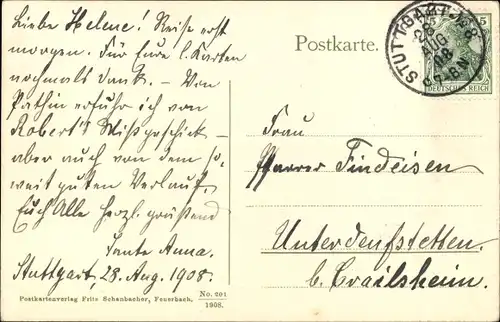 Liebe Helene! Reise erst
morgen. Für Eure l. Karten
nochmals Dank. – Von
Pathin erfuhr ich von
Robert's Mißgeschick –
aber auch von dem so-
weit guten Verlauf.
Euch Alle herzl. grüßend
Tante Anna.
Stuttgart, 28. Aug. 1908.
Postkartenverlag Fritz Schanbacher, Feuerbach.
No. 201
1908.
Postkarte.
STUTTGART No. 8
28
AUG
08
6-7 N.
5
DEUTSCHES REICH
Frau
Pfarrer Findeisen
Unterdeufstetten.
b. Crailsheim.